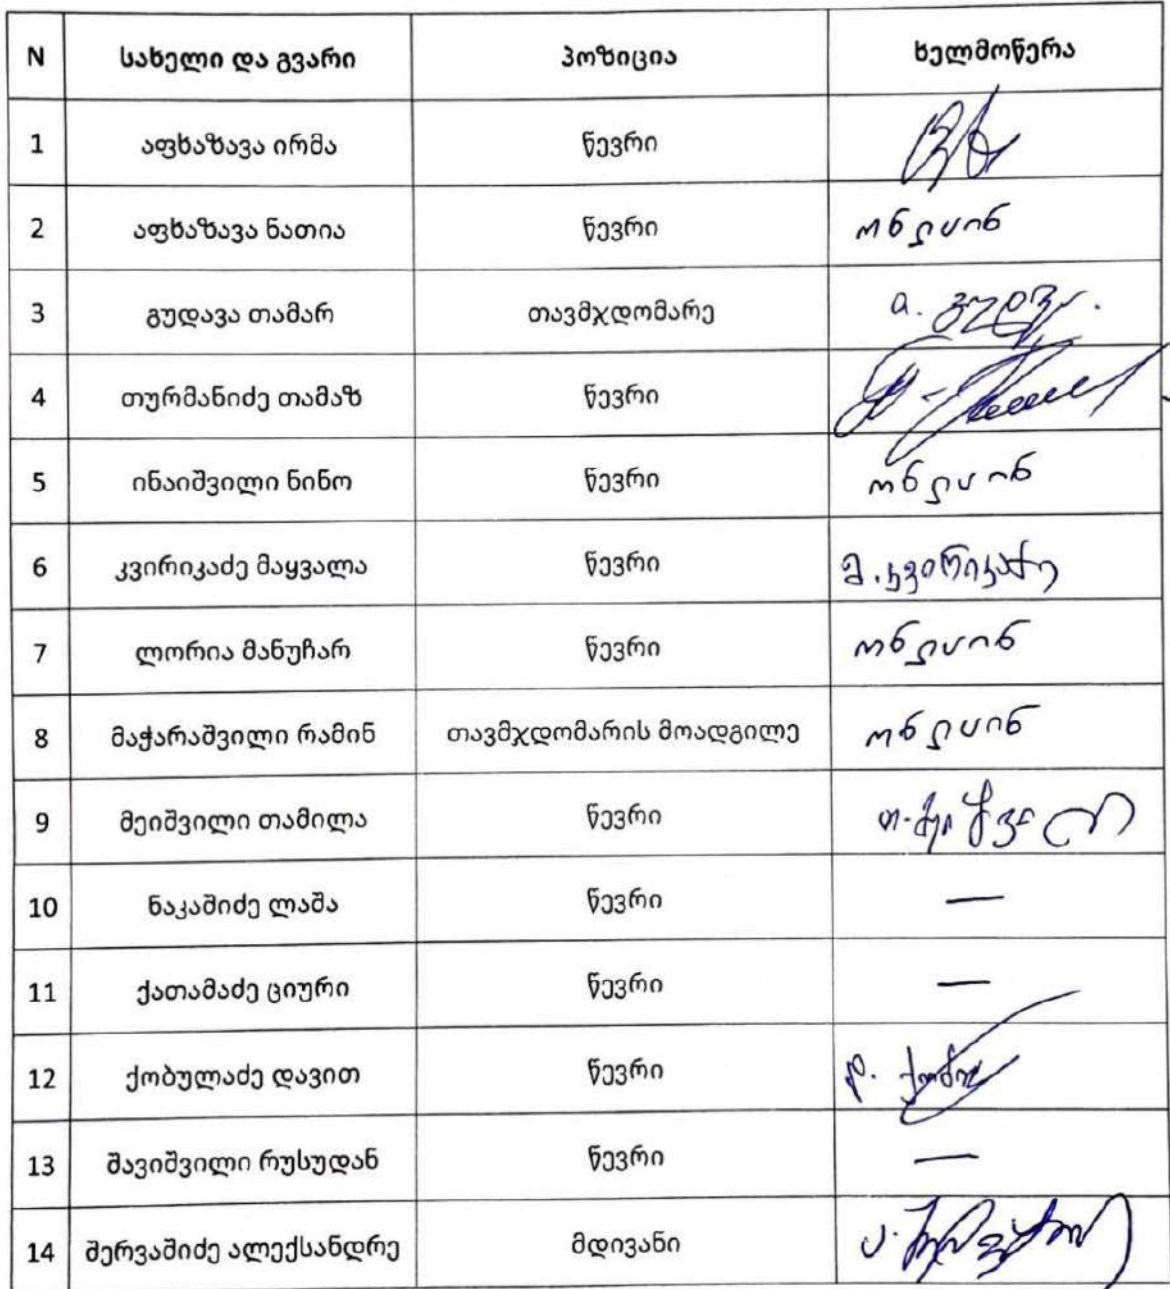 N სახელი და გვარი პოზიცია ხელმოწერა
1 აფხაზავა ირმა წევრი
2 აფხაზავა ნათია წევრი ონლაინ
3 გუდავა თამარ თავმჯდომარე
4 თურმანიძე თამაზ წევრი
5 ინაიშვილი ნინო წევრი ონლაინ
6 კვირიკაძე მაყვალა წევრი მ. კვირიკაძე
7 ლორია მანუჩარ წევრი ონლაინ
8 მაჭარაშვილი რამინ თავმჯდომარის მოადგილე ონლაინ
9 მეიშვილი თამილა წევრი
10 ნაკაშიძე ლაშა წევრი —
11 ქათამაძე ციური წევრი —
12 ქობულაძე დავით წევრი
13 შავიშვილი რუსუდან წევრი —
14 შერვაშიძე ალექსანდრე მდივანი